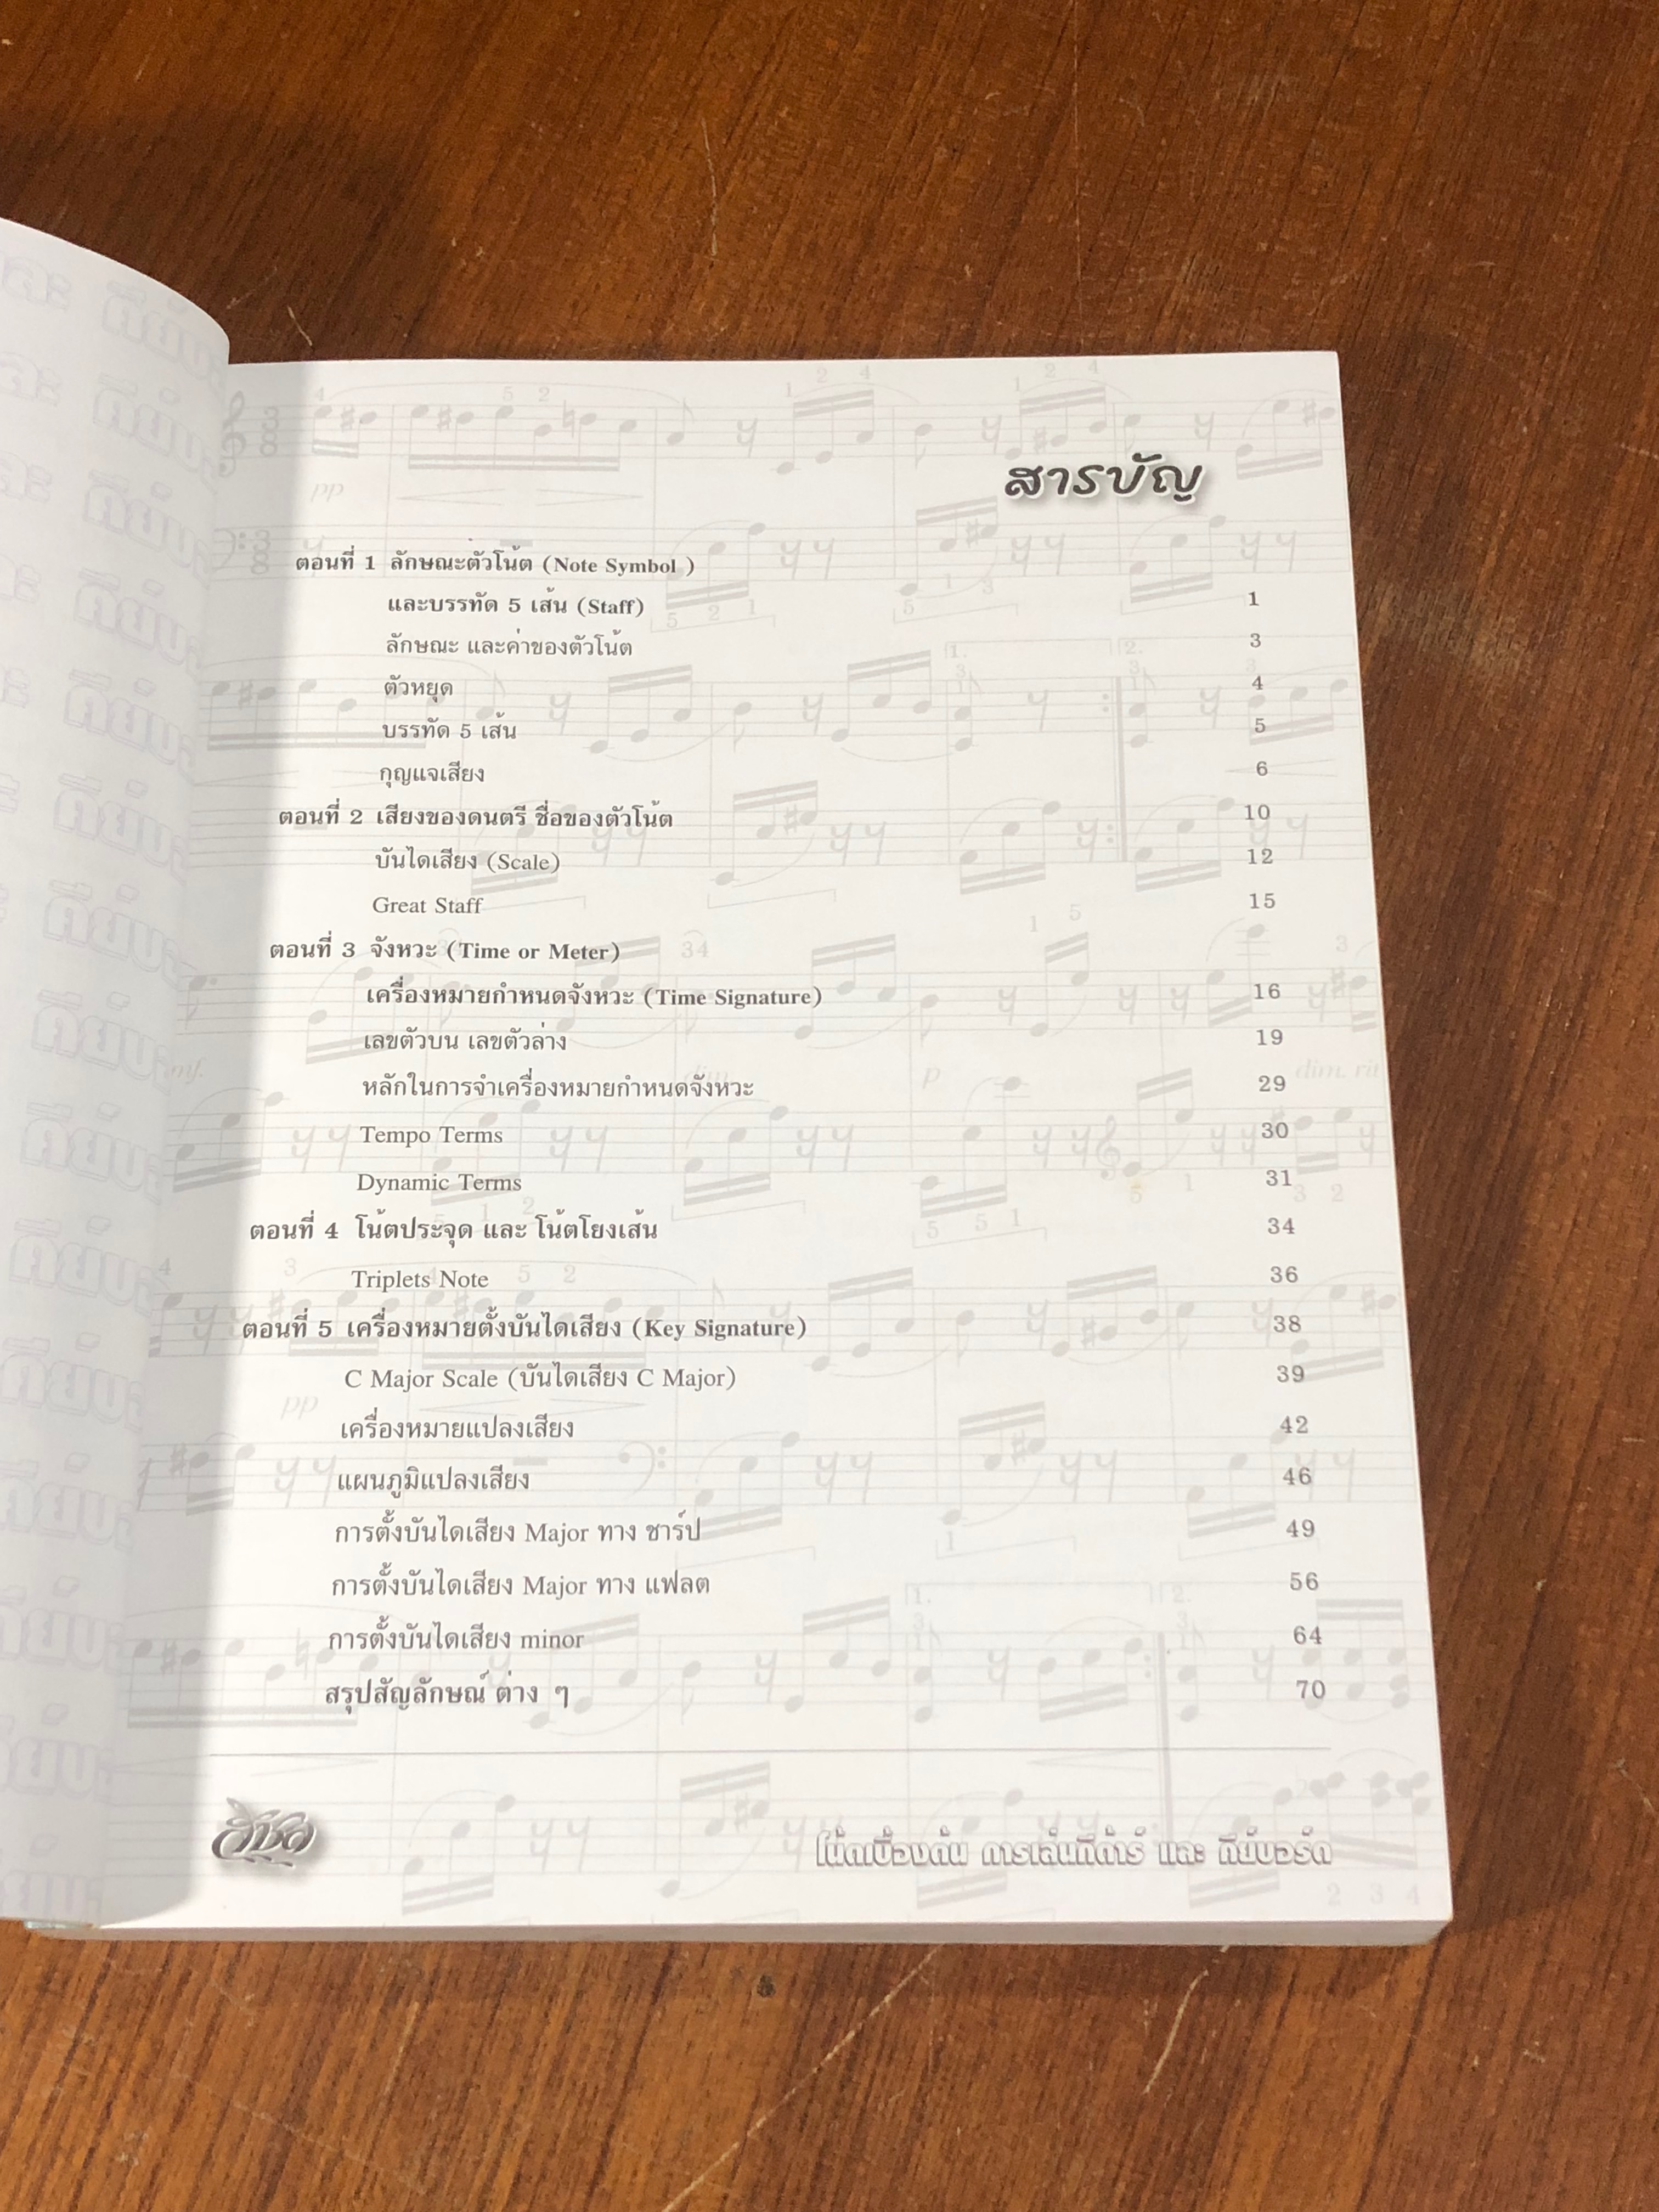 สารบัญ
ตอนที่ 1 ลักษณะตัวโน้ต (Note Symbol )
และบรรทัด 5 เส้น (Staff) 1
ลักษณะ และค่าของตัวโน้ต 3
ตัวหยุด 4
บรรทัด 5 เส้น 5
กุญแจเสียง 6
ตอนที่ 2 เสียงของดนตรี ชื่อของตัวโน้ต 10
บันไดเสียง (Scale) 12
Great Staff 15
ตอนที่ 3 จังหวะ (Time or Meter)
เครื่องหมายกำหนดจังหวะ (Time Signature) 16
เลขตัวบน เลขตัวล่าง 19
หลักในการจำเครื่องหมายกำหนดจังหวะ 29
Tempo Terms 30
Dynamic Terms 31
ตอนที่ 4 โน้ตประจุด และ โน้ตโยงเส้น 34
Triplets Note 36
ตอนที่ 5 เครื่องหมายตั้งบันไดเสียง (Key Signature) 38
C Major Scale (บันไดเสียง C Major) 39
เครื่องหมายแปลงเสียง 42
แผนภูมิแปลงเสียง 46
การตั้งบันไดเสียง Major ทาง ชาร์ป 49
การตั้งบันไดเสียง Major ทาง แฟลต 56
การตั้งบันไดเสียง minor 64
สรุปสัญลักษณ์ ต่าง ๆ 70
โน้ตเบื้องต้น การเล่นกีต้าร์ และ คีย์บอร์ด